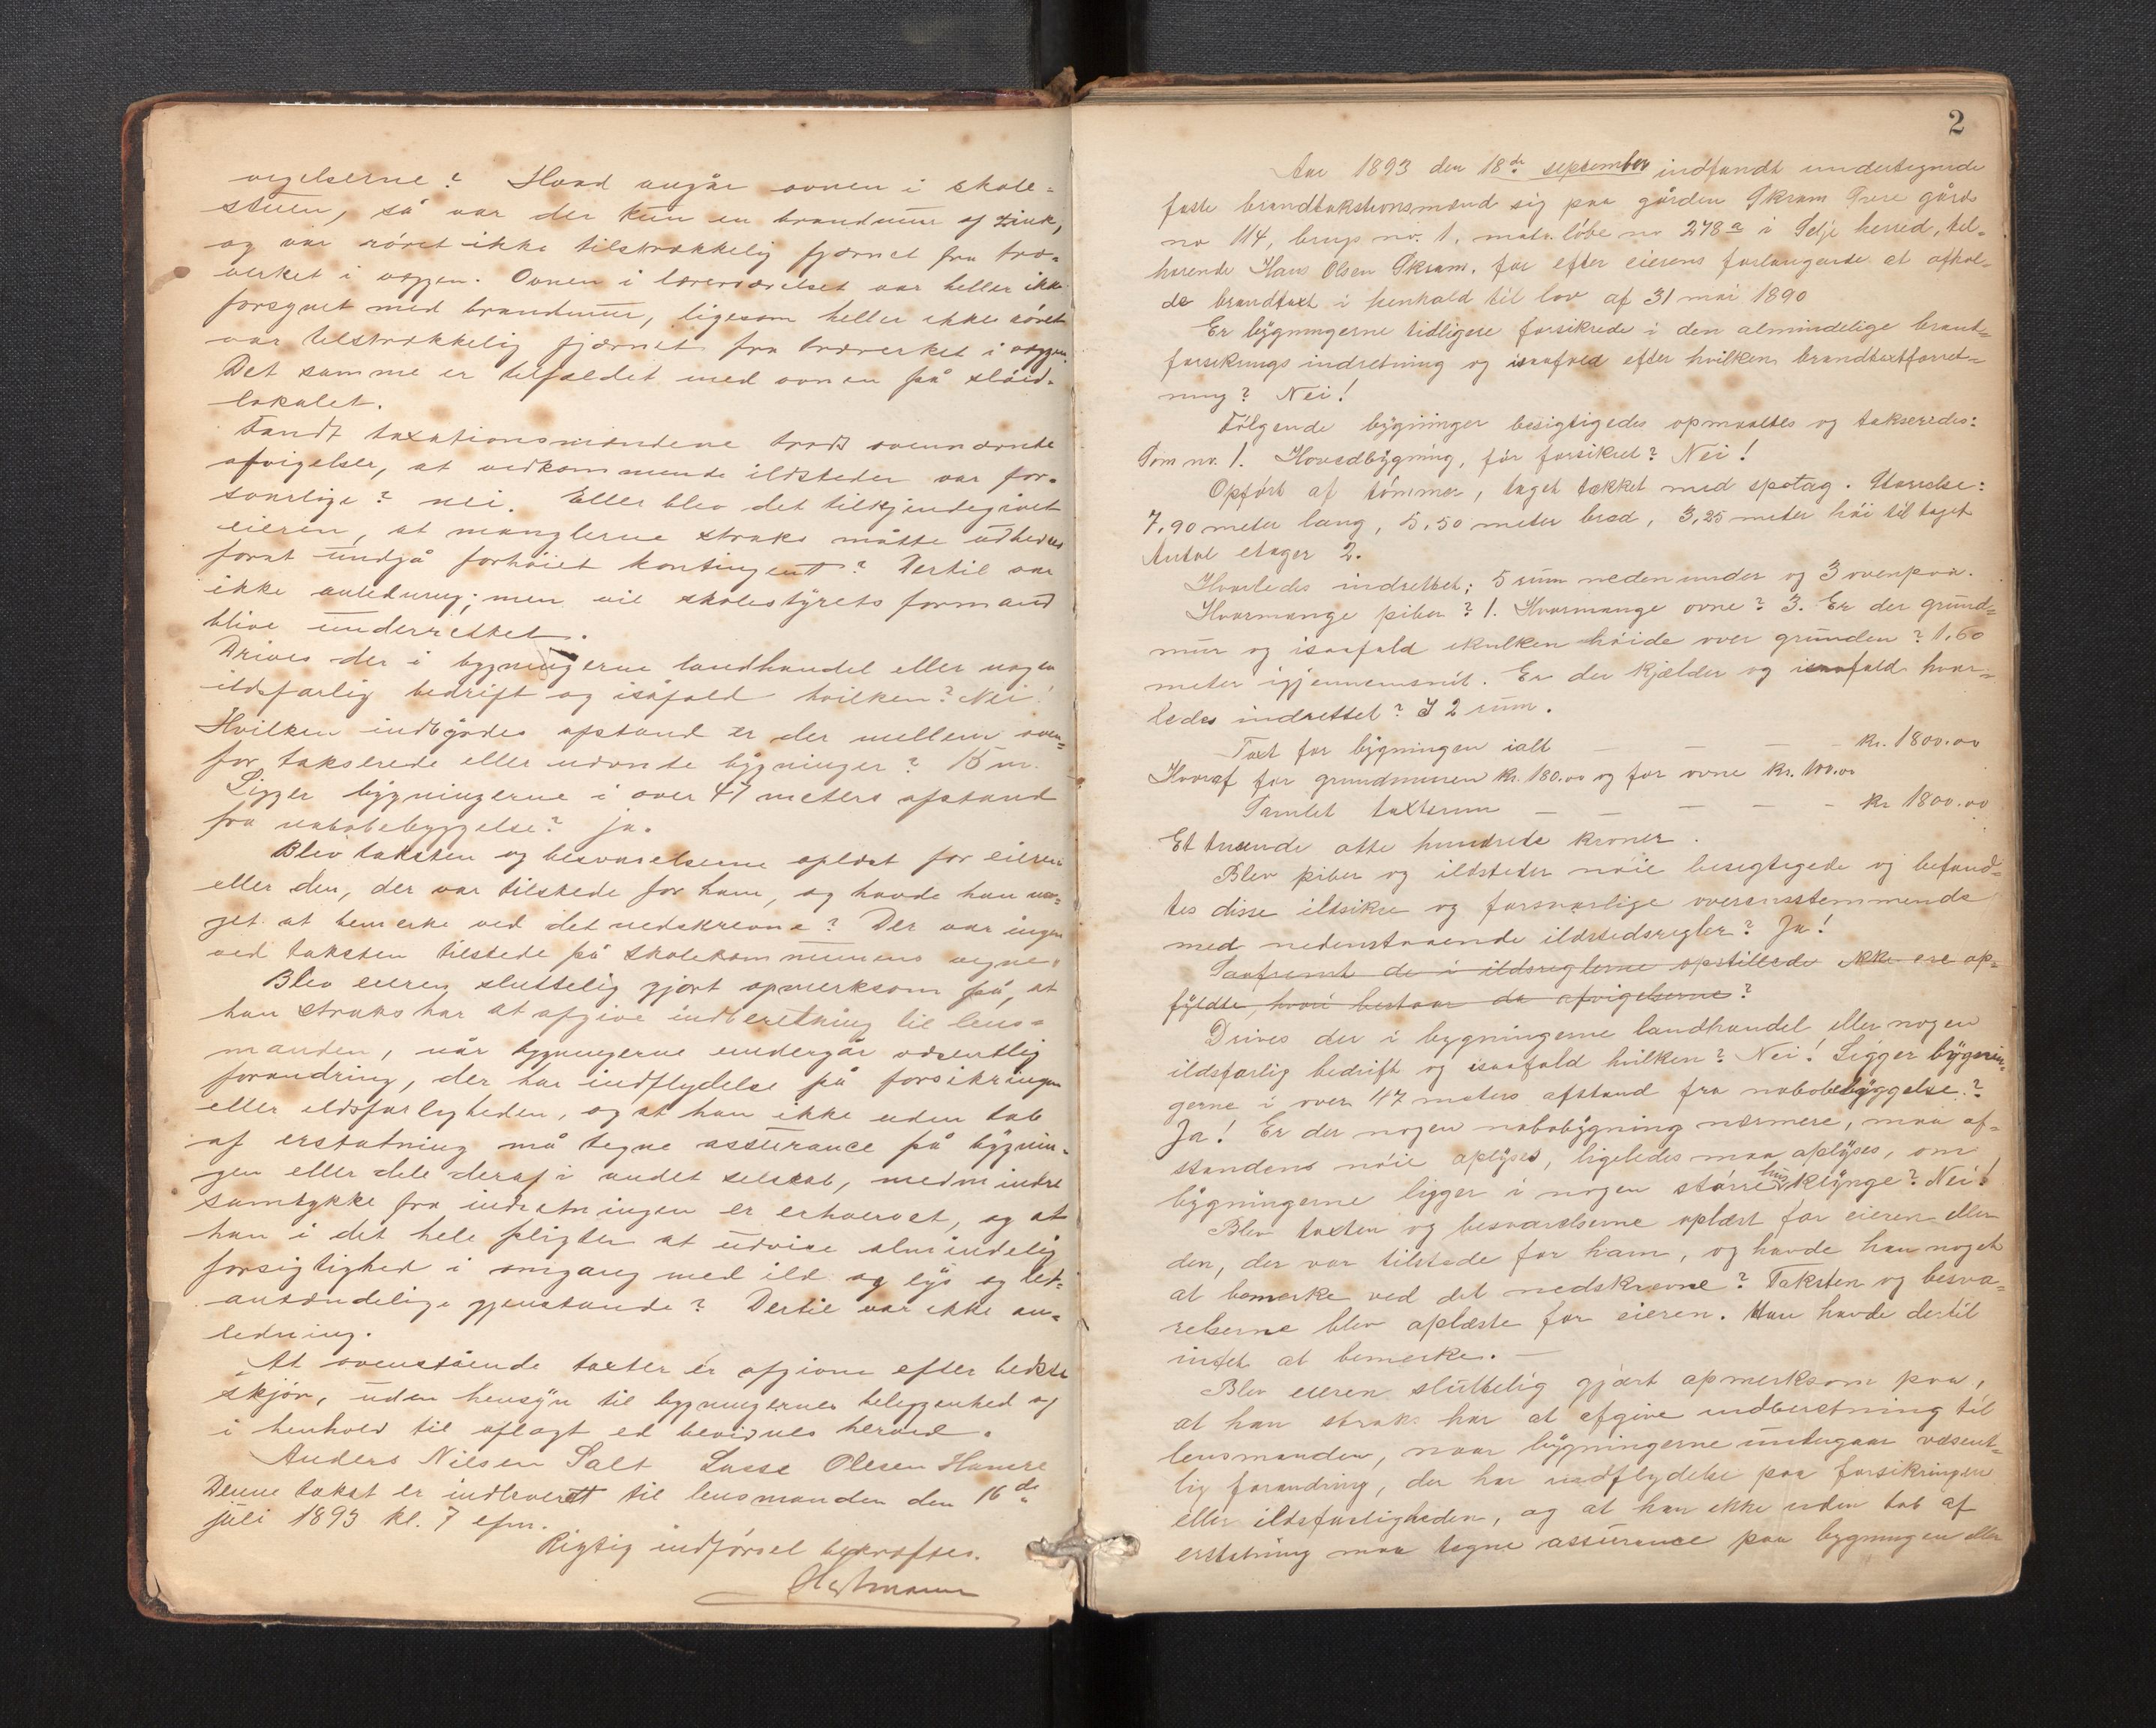 vigelserne? Hvad angår ovnen i skole-
stuen, så var der kun en brandmur af zink,
og var röret ikke tilstrækkelig fjærnet fra træ-
verket i væggen. Ovnen i læreværelset var heller ikke
forsynet med brandmur, ligesom heller ikke röret
var tilstrækkelig fjærnet fra træverket i væggen.
Det samme er tilfældet med ovnen på slöid-
lokalet.
Fandt taxationsmændene trods ovennævnte
afvigelser, at vedkommende ildsteder var for-
svarlige? nei. Eller blev det tilkjendegivet
eieren, at manglerne straks måtte udbedres
forat undgå forhöiet kontingent? Dertil var
ikke anledning; men vil skolestyrets formand
blive underrettet.
Drives der i bygningerne landhandel eller nogen
ildsfarlig bedrift og isåfald hvilken? Nei!
Hvilken indbyrdes afstand er der mellem oven-
for takserede eller nævnte bygninger? 15 m.
Ligger bygningerne i over 47 meters afstand
fra nabobebyggelse? ja.
Blev taksten og besvarelserne oplæst for eieren
eller den, der var tilstede for ham, og havde han no-
get at bemerke ved det nedskrevne? Der var ingen
ved taksten tilstede på skolekommunens vegne.
Blev eieren sluttelig gjort opmerksom på, at
han straks har at afgive indberetning til lens-
manden, når bygningerne undergår væsentlig
forandring, der har indflydelse på forsikringen
eller ildsfarligheden, og at han ikke uden tab
af erstatning må tegne assurance på bygnin-
gen eller dele deraf i andet selskab, medmindre
samtykke fra indretningen er erhvervet, og at
han i det hele pligter at udvise almindelig
forsigtighed i omgang med ild og lys og let-
antændelige gjenstande? Dertil var ikke an-
ledning.
At ovenstående taxter er afgivne efter bedste
skjön, uden hensyn til bygningernes beliggenhed og
i henhold til aflagt ed bevidnes herved.
Anders Nilsen Salt Lasse Olesen Hamre
Denne takst er indleveret til lensmanden den 16de
juli 1893 kl. 7 efm.
Rigtig indförsel bekræftes.
2
Aar 1893 den 18de september indfandt undertegnede
faste brandtakstionsmænd sig paa gården Skram Övre gårds
no 114, brugs no. 1, matr. löbe no 278a i Selje herred, til-
hörende Hans Olsen Skram, for efter eierens forlangende at afhol-
de brandtaxt i henhold til lov af 31 mai 1890
Er bygningerne tidligere forsikrede i den almindelige brand-
forsikrings indretning og isaafald efter hvilken brandtaxtforret-
ning? Nei!
Fölgende bygninger besigtigedes opmaaltes og takseredes:
Som no. 1. Hovedbygning, för forsikret? Nei!
Opfört af tömmer, taget tækket med spotag. Störrelse:
7,90 meter lang, 5,50 meter bred, 3,25 meter höi til taget
Antal etager 2.
Hvorledes indrettet: 5 rum nedenunder og 3 ovenpaa.
Hvormange piber? 1. Hvormange ovne? 3. Er der grund-
mur og isaafald hvilken höide over grunden? 1,60
meter igjennemsnit. Er der kjælder og isaafald hvor-
ledes indrettet? I 2 rum.
Taxt for bygningen ialt — — — — kr. 1800.00
Hvoraf for grundmuren kr. 180.00 og for ovne kr. 100.00
Samlet taxtsum — — — — — kr 1800.00
Et tusende otte hundrede kroner.
Blev piber og ildsteder nöie besigtigede og befand-
tes disse ildsikre og forsvarlige overensstemmende
med nedenstaaende ildstedsregler? Ja!
Saafremt de i ildsreglerne opstillede ikke ere op-
fyldte, hvori bestaar da afvigelserne?
Drives der i bygningerne landhandel eller nogen
ildsfarlig bedrift og isaafald hvilken? Nei! Ligger bygnin-
gerne i over 47 meters afstand fra nabobebyggelse?
Ja! Er der nogen nabobygning nærmere, maa af-
standens nöie oplyses, ligeledes maa oplyses, om
bygningerne ligger i nogen större husklynge? Nei!
Blev taxten og besvarelserne oplæst for eieren eller
den, der var tilstede for ham, og havde han noget
at bemerke ved det nedskrevne? Taksten og besva-
relserne blev oplæste for eieren. Han havde dertil
intet at bemerke. —
Blev eieren sluttelig gjort opmerksom paa,
at han straks har at afgive indberetning til
lensmanden, naar bygningerne undergaar væsent-
lig forandring, der har indflydelse paa forsikringen
eller ildsfarligheden, og at han ikke uden tab af
erstatning maa tegne assurance paa bygningen eller